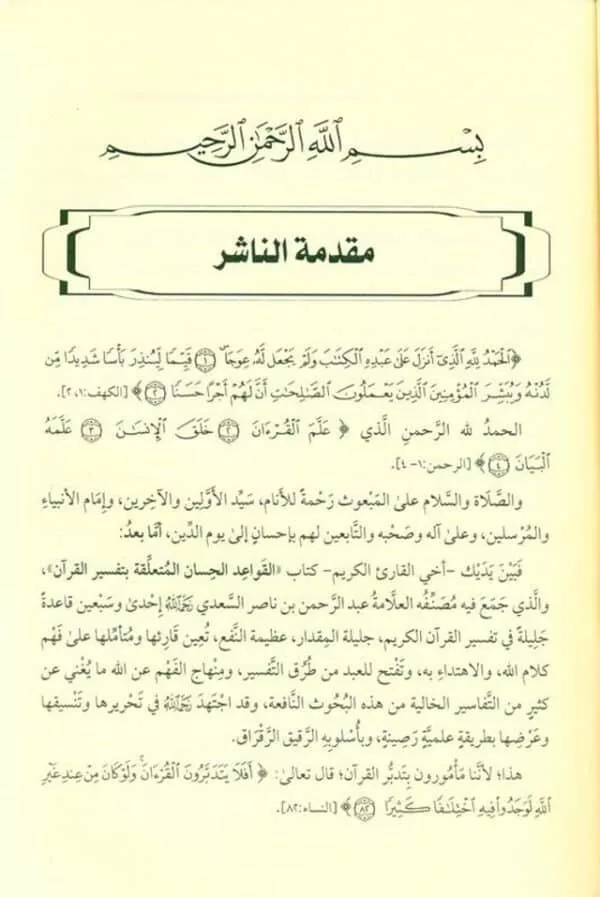 بِسْمِ ٱللَّهِ ٱلرَّحْمَٰنِ ٱلرَّحِيمِ
مقدمة الناشر
﴿ٱلْحَمْدُ لِلَّهِ ٱلَّذِىٓ أَنزَلَ عَلَىٰ عَبْدِهِ ٱلْكِتَٰبَ وَلَمْ يَجْعَل لَّهُۥ عِوَجَا ۜ ﴿١﴾ قَيِّمًا لِّيُنذِرَ بَأْسًا شَدِيدًا مِّن
لَّدُنْهُ وَيُبَشِّرَ ٱلْمُؤْمِنِينَ ٱلَّذِينَ يَعْمَلُونَ ٱلصَّٰلِحَٰتِ أَنَّ لَهُمْ أَجْرًا حَسَنًا ﴿٢﴾﴾ [الكهف:١، ٢].
الحمدُ لله الرَّحمنِ الَّذي ﴿ عَلَّمَ ٱلْقُرْءَانَ ﴿٢﴾ خَلَقَ ٱلْإِنسَٰنَ ﴿٣﴾ عَلَّمَهُ
ٱلْبَيَانَ ﴿٤﴾﴾ [الرحمن:١-٤].
والصَّلَاة والسَّلام علىٰ المَبْعوث رَحْمةً للأنام، سَيِّد الأوَّلين والآخِرين، وإمَام الأنبياءِ
والمُرْسلين، وعلىٰ آله وصَحْبه والتَّابعين لهم بإحسانٍ إلىٰ يوم الدِّين، أمَّا بعدُ:
فَبَيْنَ يَدَيْكَ -أخي القارئ الكريم- كتاب «القَواعد الحِسان المُتعلِّقة بتفسير القرآن»،
والَّذي جَمَعَ فيه مُصَنِّفُه العلَّامةُ عبد الرَّحمن بن ناصر السَّعدي رَحِمَهُ اللَّهُ إِحْدىٰ وسَبْعين قاعدةً
جَلِيلةً في تفسير القرآن الكريم، جليلة المِقدار، عظيمة النَّفع، تُعِين قارئها ومتأمِّلها علىٰ فَهْم
كلام الله، والاهتداءِ به، وتَفْتح للعبد من طُرُق التَّفسير، ومِنْهاج الفَهْم عن الله ما يُغْني عن
كثيرٍ من التَّفاسير الخالية من هذه البُحُوث النَّافعة، وقد اجْتَهَدَ رَحِمَهُ اللَّهُ في تَحْريرها وتَنْسيقها
وعَرْضِها بطريقةٍ علميَّةٍ رَصِينةٍ، وبأُسْلوبِهِ الرَّقيق الرَّقْراق.
هذا؛ لأنَّنا مَأْمُورون بِتَدبُّر القرآن؛ قال تعالىٰ: ﴿ أَفَلَا يَتَدَبَّرُونَ ٱلْقُرْءَانَ ۚ وَلَوْ كَانَ مِنْ عِندِ غَيْرِ
ٱللَّهِ لَوَجَدُوا۟ فِيهِ ٱخْتِلَٰفًا كَثِيرًا ﴿٨٢﴾﴾ [النساء:٨٢].